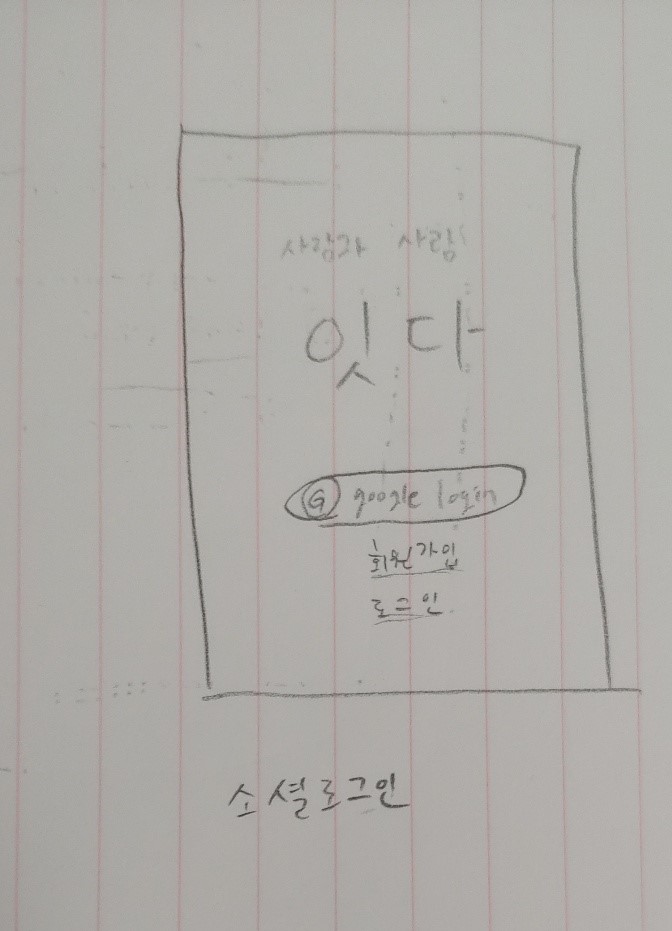 사람과 사람
잇다
G google login
회원가입
로그인
소셜로그인